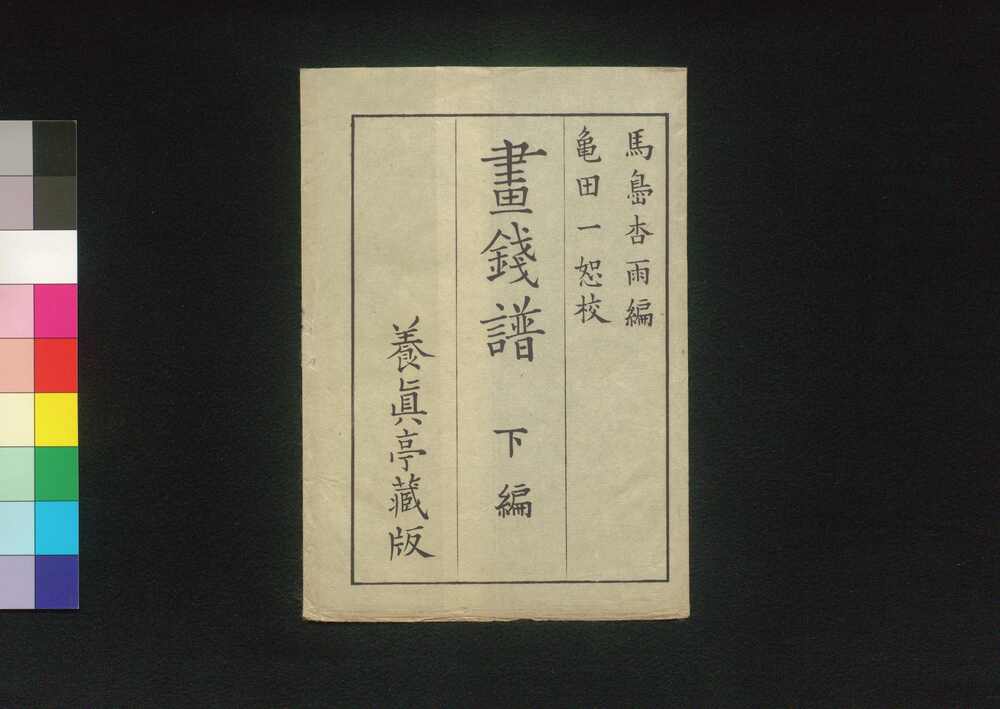 馬島杏雨編
亀田一恕校
畫錢譜 下編
養眞亭藏版